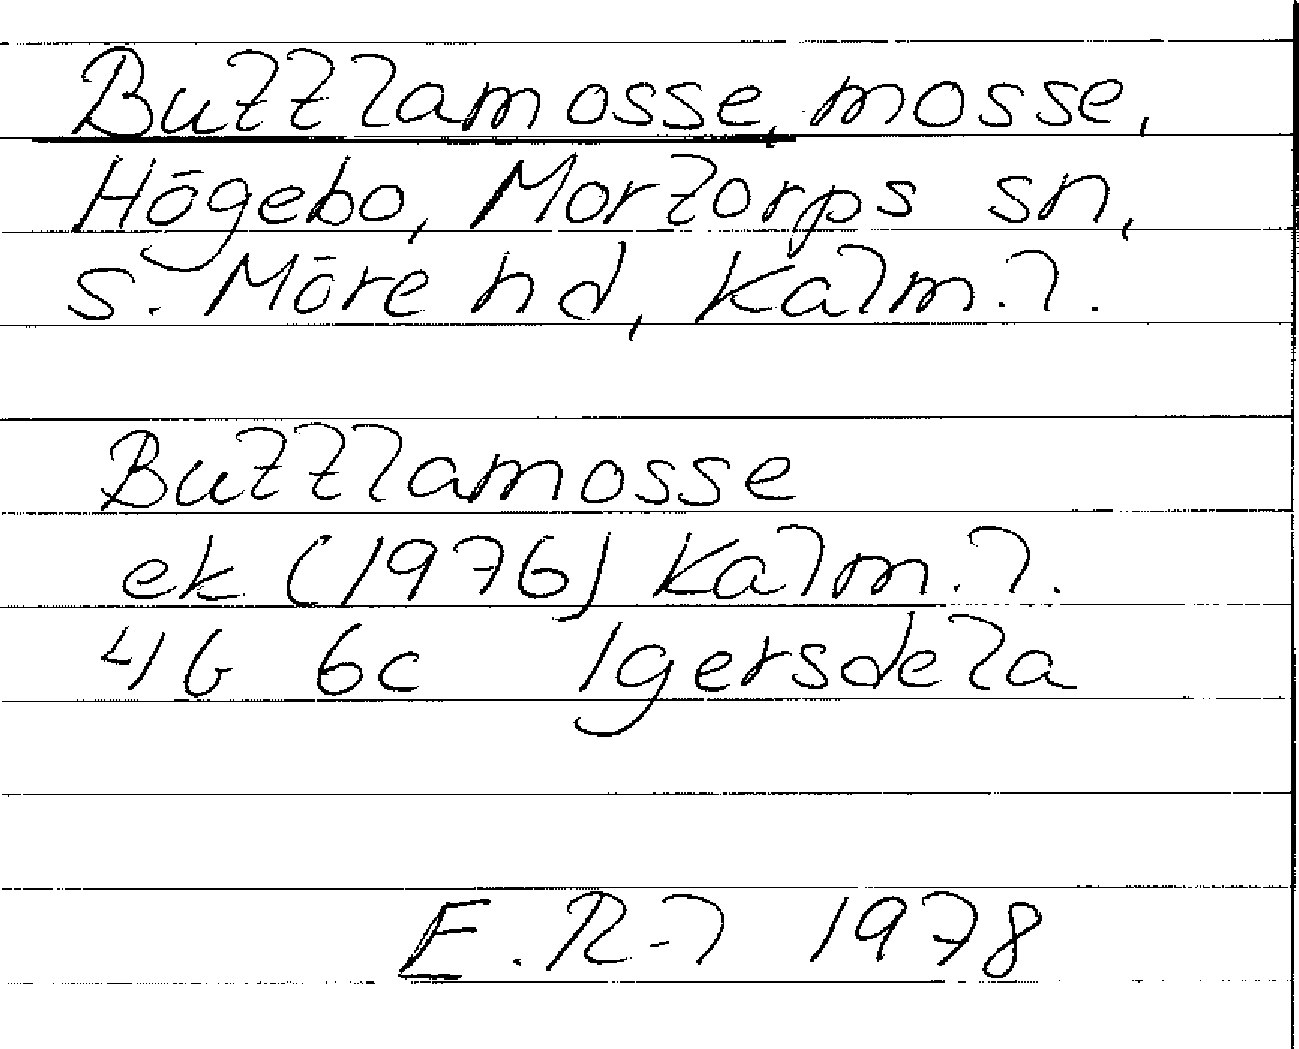 Buttlamosse, mosse,
Högebo, Mortorps sn,
S. Möre hd, Kalm. l.
Buttlamosse
ek (1976) Kalm. l.
4G 6c Igersdela
E. R-l 1978